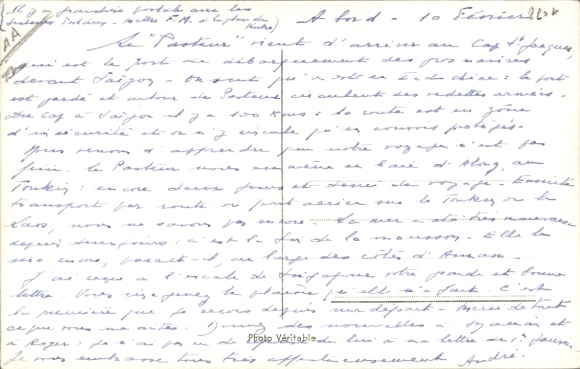 (Il y a franchise postale avec les
secteurs postaux - mettre F.M. à la place du
timbre)
A bord - 10 Février
Le "Pasteur" vient d'arriver au Cap St Jacques,
qui est le port de débarquement des gros navires
devant Saïgon - On sent qu'on est en Indochine: le port
est gardé et autour du Pasteur circulent des vedettes armées.
Du Cap à Saïgon il y a 100 Kms: la route est en zone
d'insécurité et on n'y circule qu'en convois protégés.
Nous venons d'apprendre que notre voyage n'est pas
fini. Le Pasteur nous emmène en baie d'Along, au
Tonkin: encore deux jours et demi de voyage - Ensuite
transport par route ou pont aérien sur le Tonkin ou le
Laos, nous ne savons pas encore. La mer a été très mauvaise
depuis deux jours: c'est la fin de la mousson. Elle le
sera encore, paraît-il, au large des côtes d'Annam.
J'ai reçu à l'escale de Singapour votre grande et bonne
lettre. Vous imaginez le plaisir qu'elle m'a fait. C'est
la première que je reçois depuis mon départ - Merci de tout
ce que vous me dites. Donnez des nouvelles à et
à Roger: je n'ai pas eu de réponse de lui à ma lettre du 1er Janvier
Je vous embrasse tous très affectueusement André.
Photo Véritable